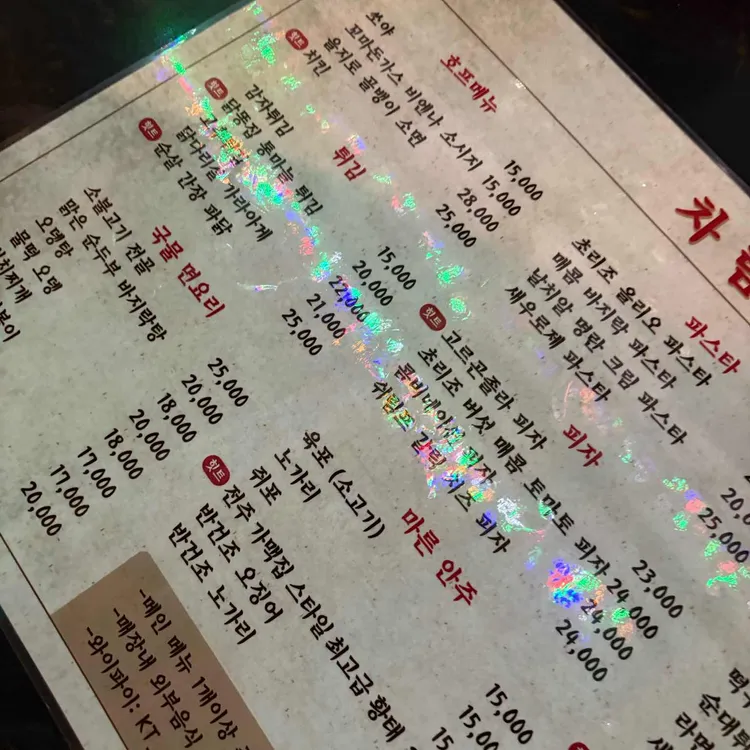 차림
호프메뉴
쏘야 15,000
꼬마돈가스 비엔나 소시지 15,000
을지로 골뱅이 소면 28,000
힛트 치킨 25,000
튀김
감자튀김 15,000
힛트 닭똥집 통마늘 튀김 20,000
22,000
닭다리살 가라아게 21,000
힛트 순살 간장 파닭 25,000
국물 면요리
소불고기 전골 25,000
맑은 순두부 바지락탕 20,000
오뎅탕 18,000
물떡 오뎅 20,000
18,000
17,000
17,000
20,000
파스타
초리조 올리오 파스타
매콤 바지락 파스타
날치알 명란 크림 파스타
새우로제 파스타 25,000
피자
힛트 고르곤졸라 피자 23,000
초리조 버섯 매콤 토마토 피자 24,000
콤비네이션 피자 24,000
쉬림프 갈릭 치즈 피자 24,000
마른 안주
육포 (소고기) 15,000
노가리
쥐포
힛트 전주 가맥집 스타일 최고급 황태
반건조 오징어
반건조 노가리
-메인 메뉴 1개이상
-매장내 외부음식
-와이파이: KT